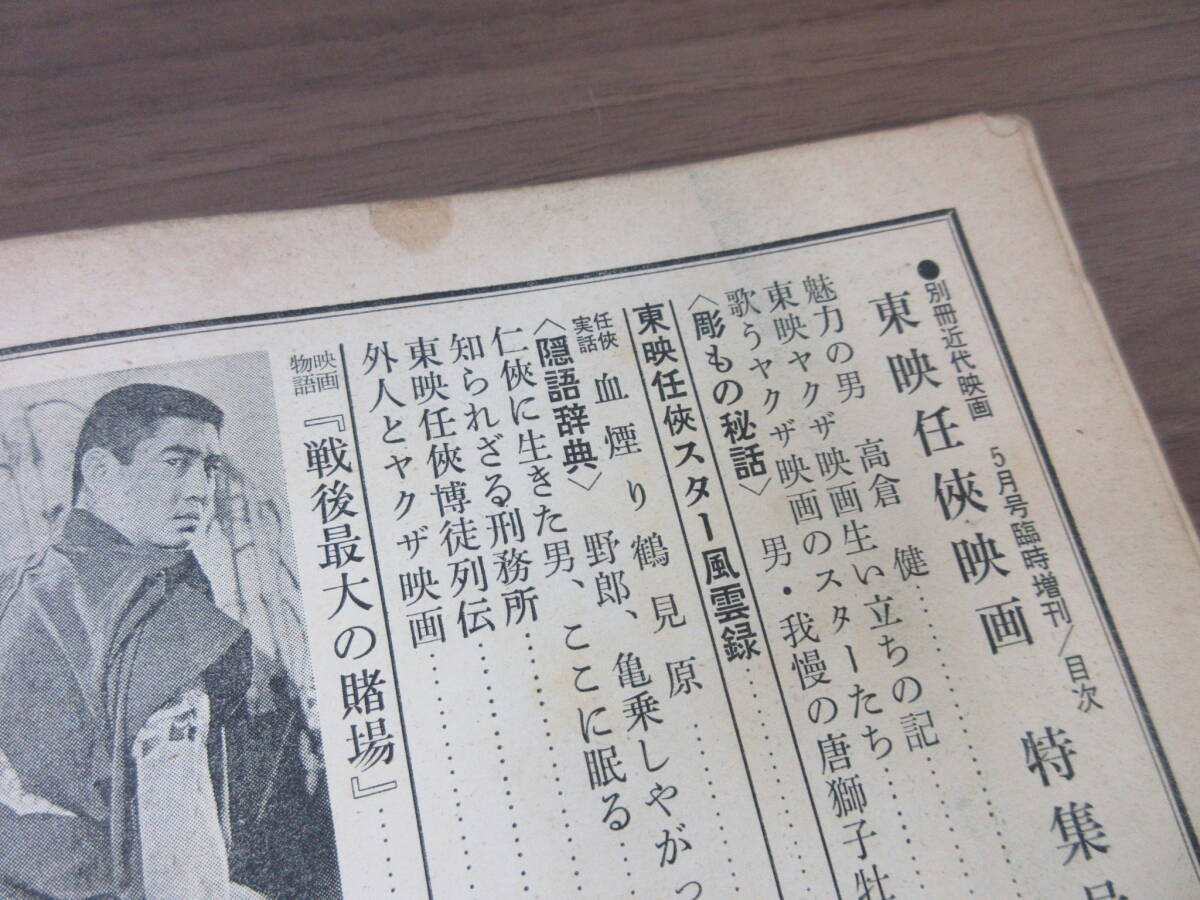 ●別冊近代映画 5月号臨時増刊/目次
東映任侠映画 特集号
魅力の男 高倉 健……
東映ヤクザ映画生い立ちの記
歌うヤクザ映画のスターたち……
〈彫もの秘話〉 男・我慢の唐獅子牡
東映任侠スター風雲録……
任侠実話 血煙り鶴見原……
〈隠語辞典〉 野郎、亀乗しやがっ
仁侠に生きた男、ここに眠る……
知られざる刑務所……
東映任侠博徒列伝……
外人とヤクザ映画……
映画物語 『戦後最大の賭場』……